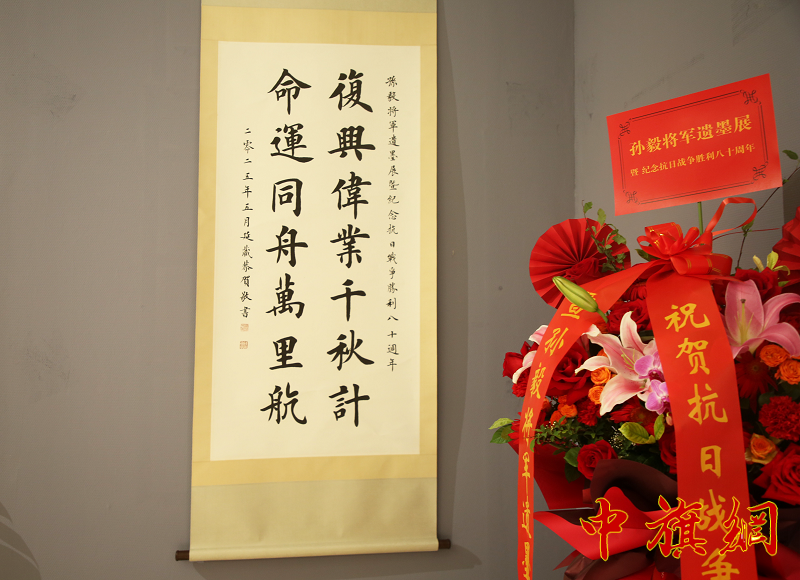 孫毅將軍遺墨展暨紀念抗日戰爭勝利八十週年
復興偉業千秋計
命運同舟萬里航
二零二五年五月延葳恭賀敬書
孙毅将军遗墨展
暨 纪念抗日战争胜利八十周年
祝贺抗日战争
孙毅将军遗墨
中旗網